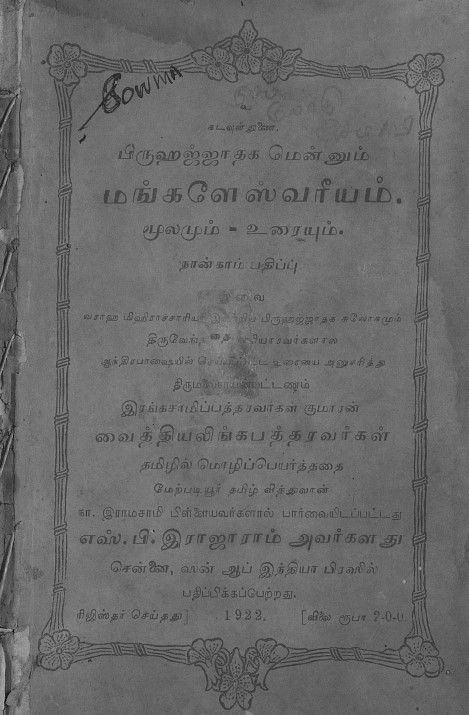 SOWMA
கடவுள் துணை.
பிருஹஜ்ஜாதக மென்னும்
மங்களேஸ்வரீயம்.
மூலமும் = உரையும்.
நான்காம் பதிப்பு
வராஹ மிஹிராச்சாரியர் பிருஹஜ்ஜாதக சுலோகமும்
உரையை அனுசரித்து
இரங்கசாமிப்பத்தரவர்கள் குமாரன்
வைத்தியலிங்கபத்தரவர்கள்
தமிழில் மொழிப்பெயர்த்ததை
மேற்படியூர் தமிழ் வித்துவான்
நா. இராமசாமி பிள்ளையவர்களால் பார்வையிடப்பட்டது
எஸ். பி. இராஜாராம் அவர்களது
சென்னை, ஸன் ஆப் இந்தியா பிரஸில்
பதிப்பிக்கப்பெற்றது.
ரிஜிஸ்தர் செய்தது] 1922. [விலை ரூபா 2-0-0